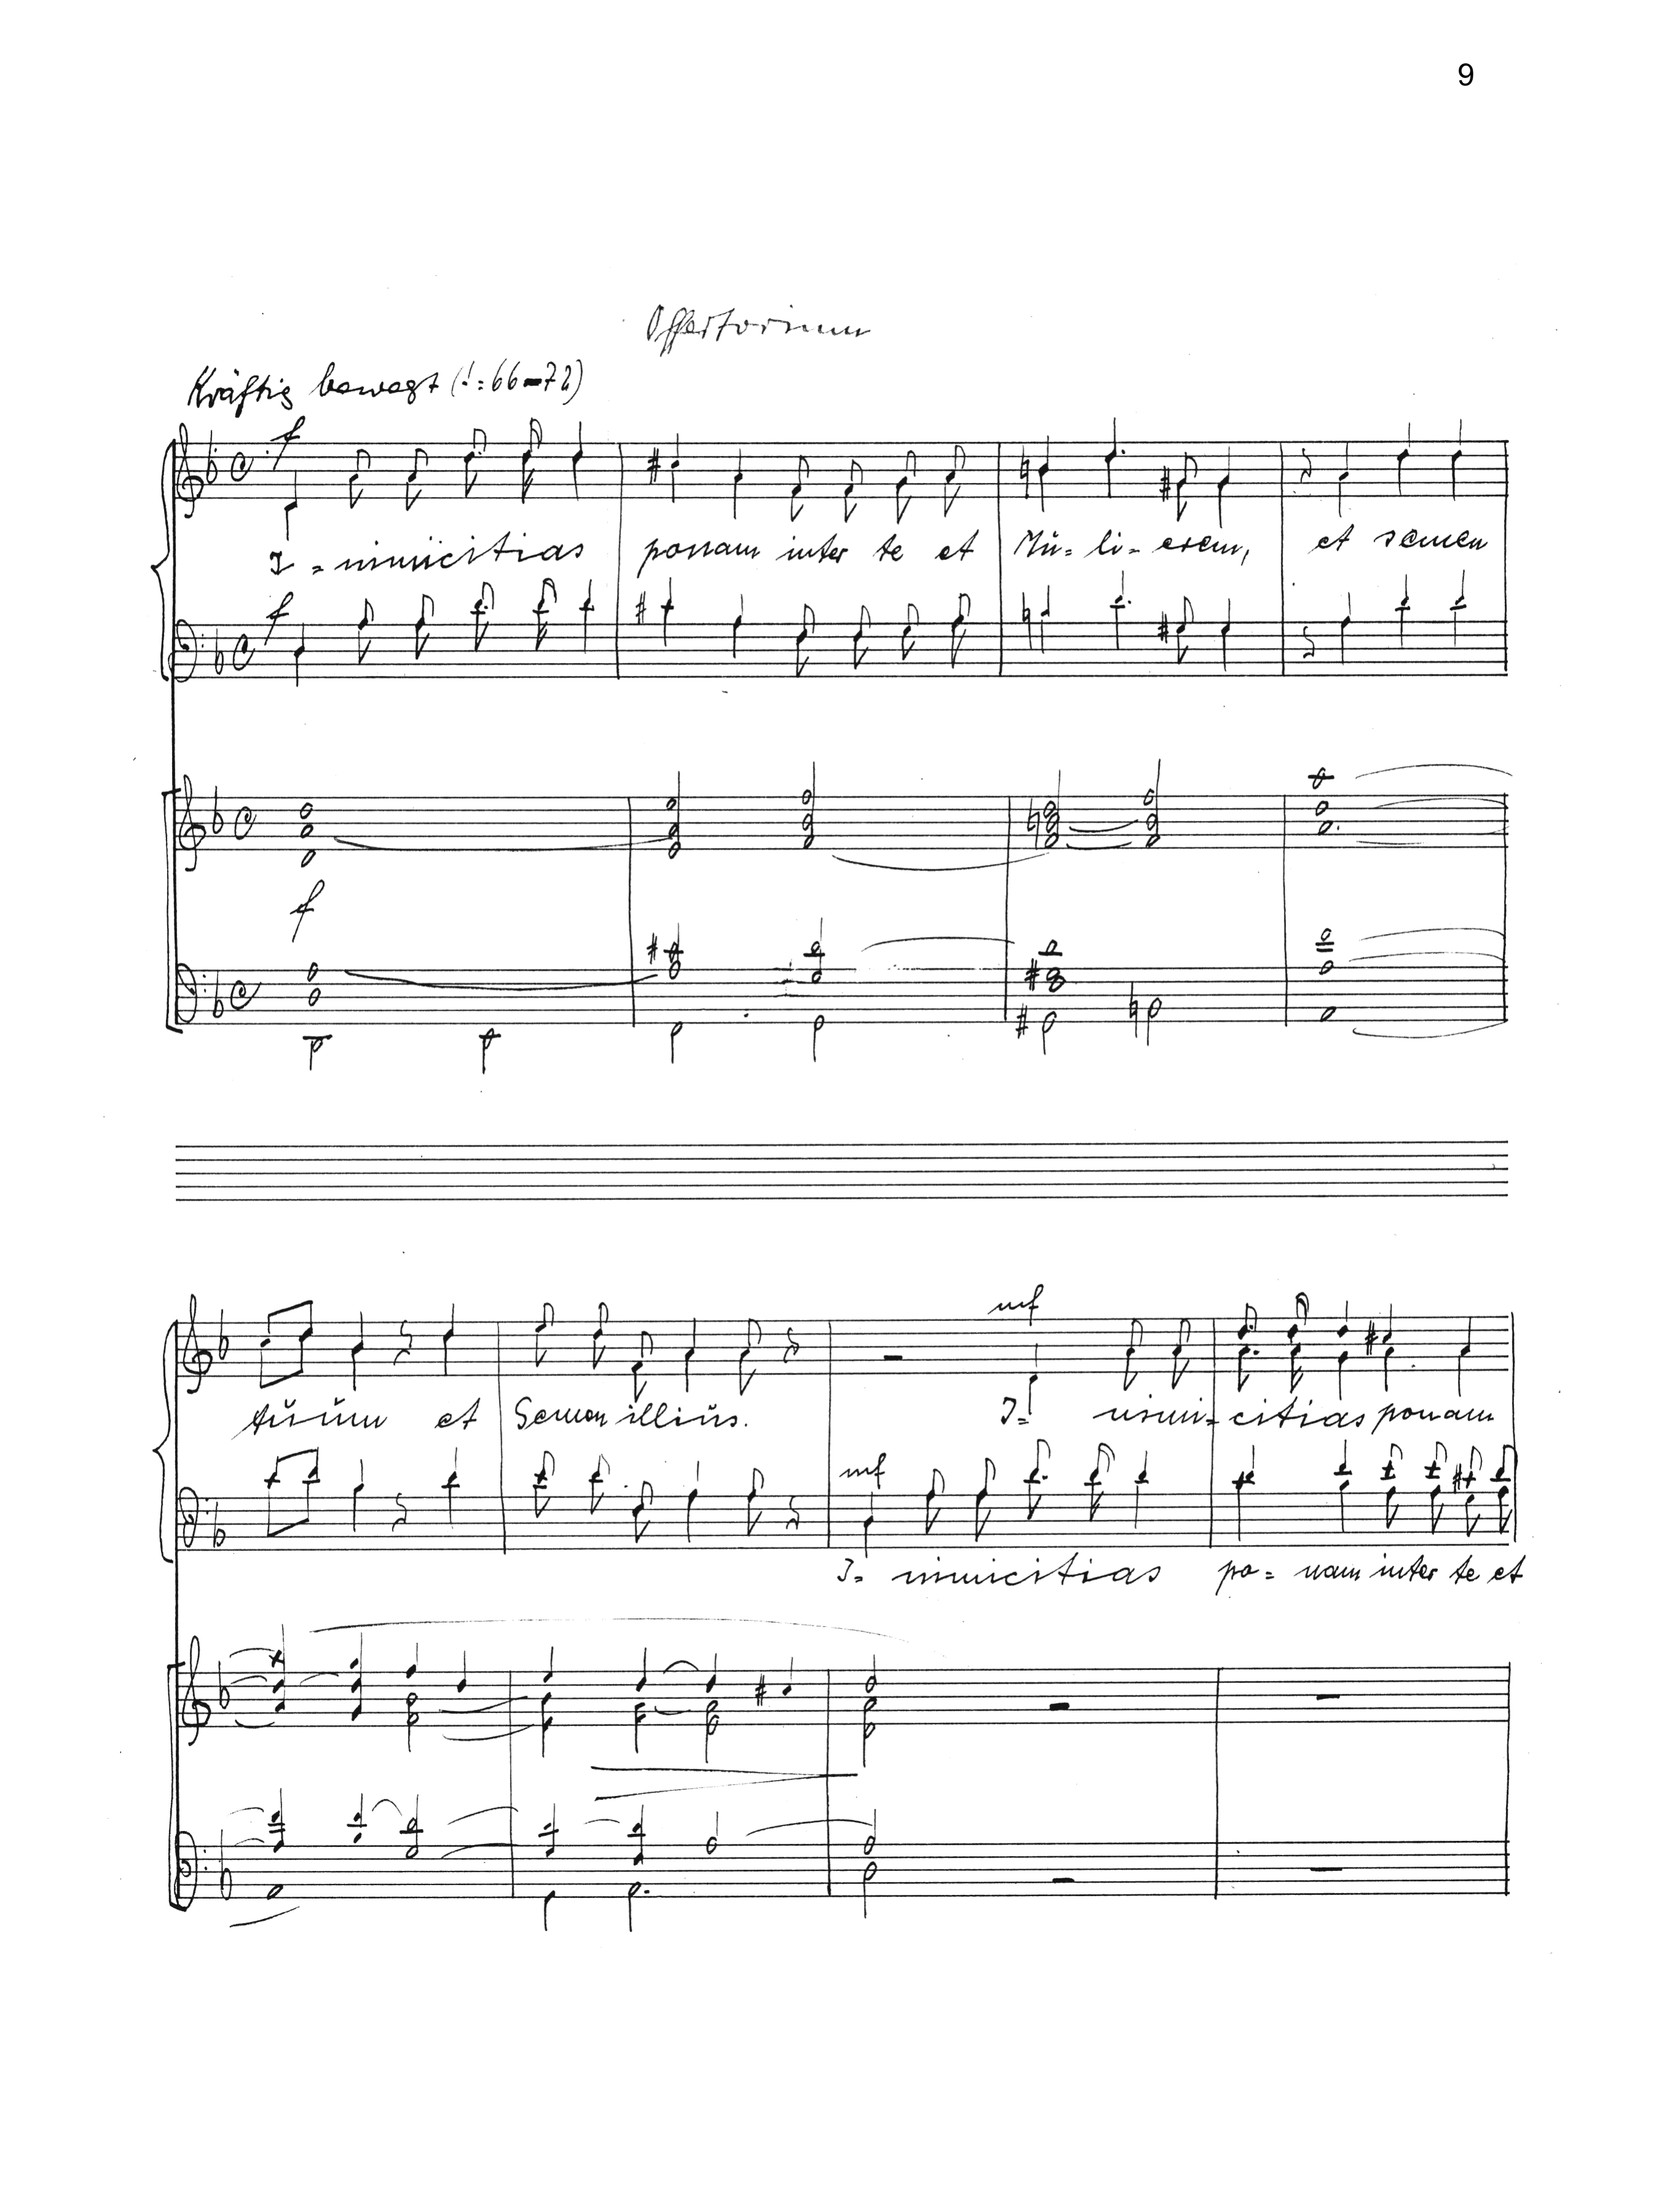 9
Offertorium
Kräftig bewegt (♩=66-72)
f
I = nimicitias ponam inter te et Mŭ- li- erem, et semen
f
f
mf
tŭŭm et Semen illiŭs. I= nimi- citias ponam
mf
I= nimicitias po= nam inter te et